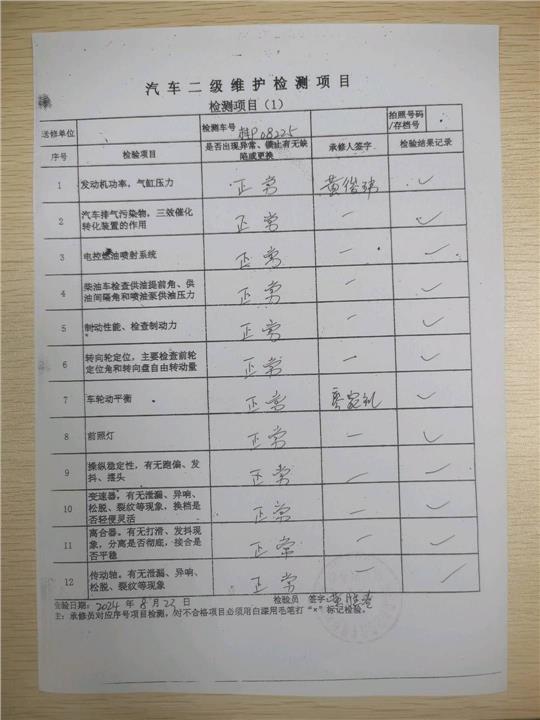 汽车二级维护检测项目
检测项目（1）
送修单位 检测车号 桂P08225 拍照号码/存档号
序号 检验项目 是否出现异常、锁止有无缺陷或更换 承修人签字 检验结果记录
1 发动机功率，气缸压力 正常 黄俊 ✓
2 汽车排气污染物，三效催化转化装置的作用 正常 一 ✓
3 电控燃油喷射系统 正常 一 ✓
4 柴油车检查供油提前角、供油间隔角和喷油泵供油压力 正常 一 ✓
5 制动性能、检查制动力 正常 一 ✓
6 转向轮定位，主要检查前轮定位角和转向盘自由转动量 正常 一 ✓
7 车轮动平衡 正常 ✓
8 前照灯 正常 一 ✓
9 操纵稳定性，有无跑偏、发抖、摆头 正常 一 ✓
10 变速器，有无泄漏、异响、松脱、裂纹等现象，换档是否轻便灵活 正常 一 ✓
11 离合器。有无打滑、发抖现象，分离是否彻底，接合是否平稳 正常 一 ✓
12 传动轴。有无泄漏、异响、松脱、裂纹等现象 正常 一 ✓
验日期：2024 年 8 月 23 日 检验员 签字：
主：承修员对应序号项目检测，对不合格项目必须用白漆用毛笔打“×”标记检验。